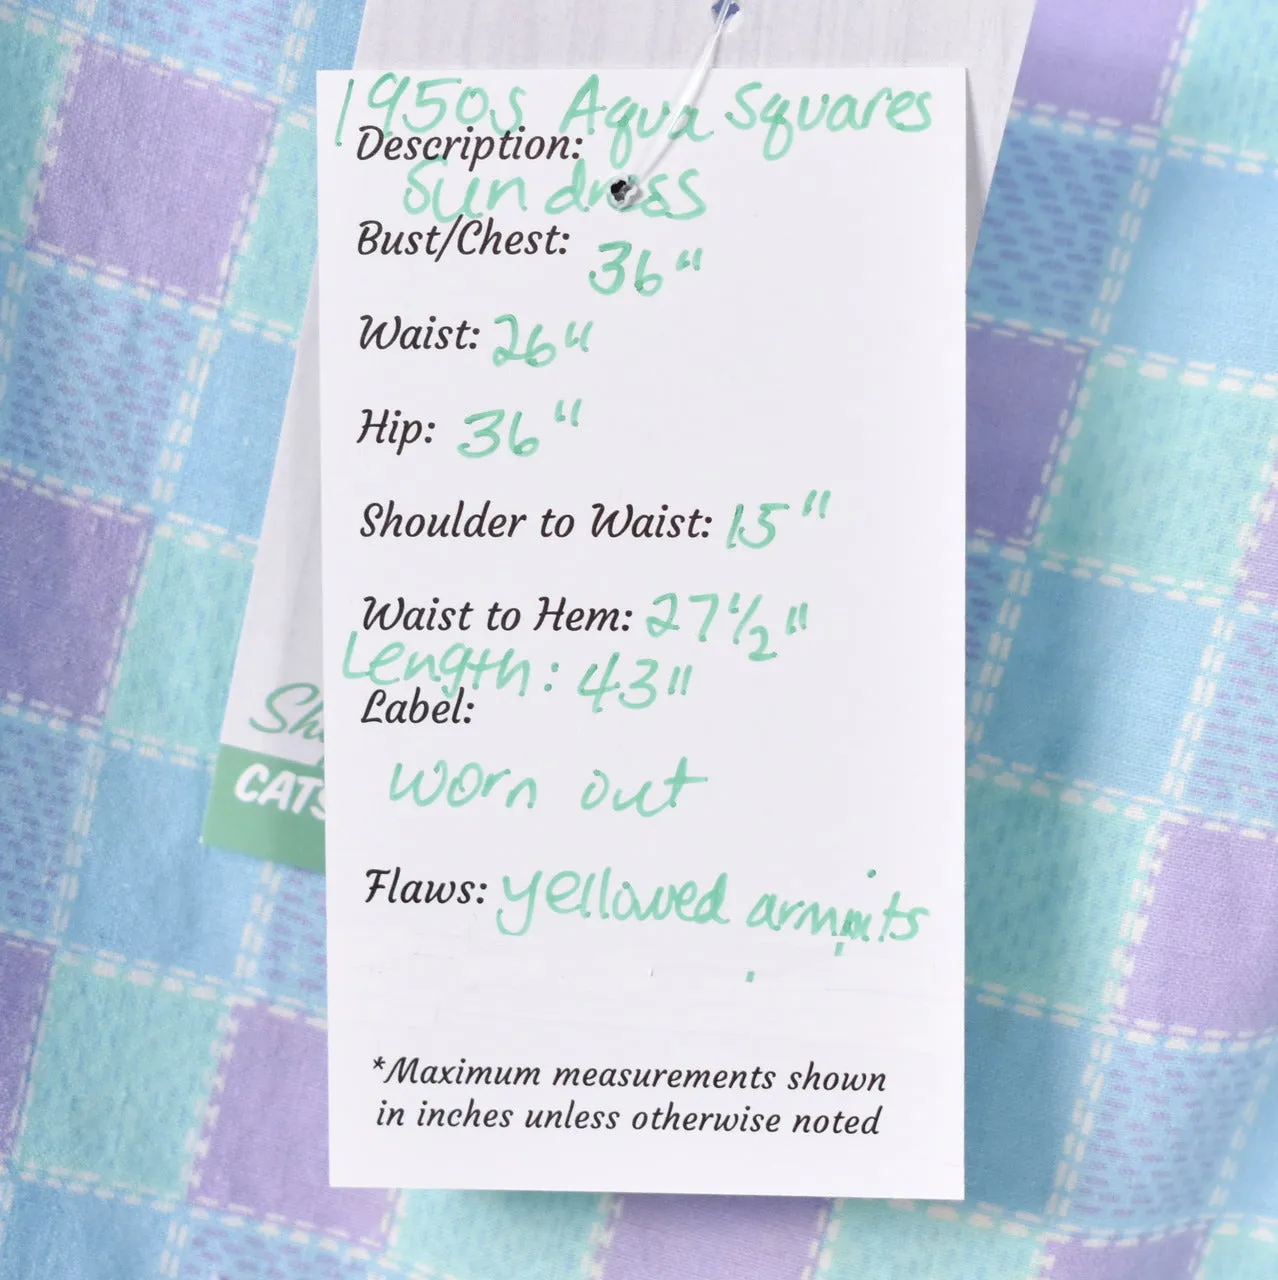 1950s Aqua Squares
Description:
Sundress
Bust/Chest: 36"
Waist: 26"
Hip: 36"
Shoulder to Waist: 15"
Waist to Hem: 27 1/2"
Length: 43"
Label:
worn out
Flaws: yellowed armpits
*Maximum measurements shown
in inches unless otherwise noted
Sh
CATS